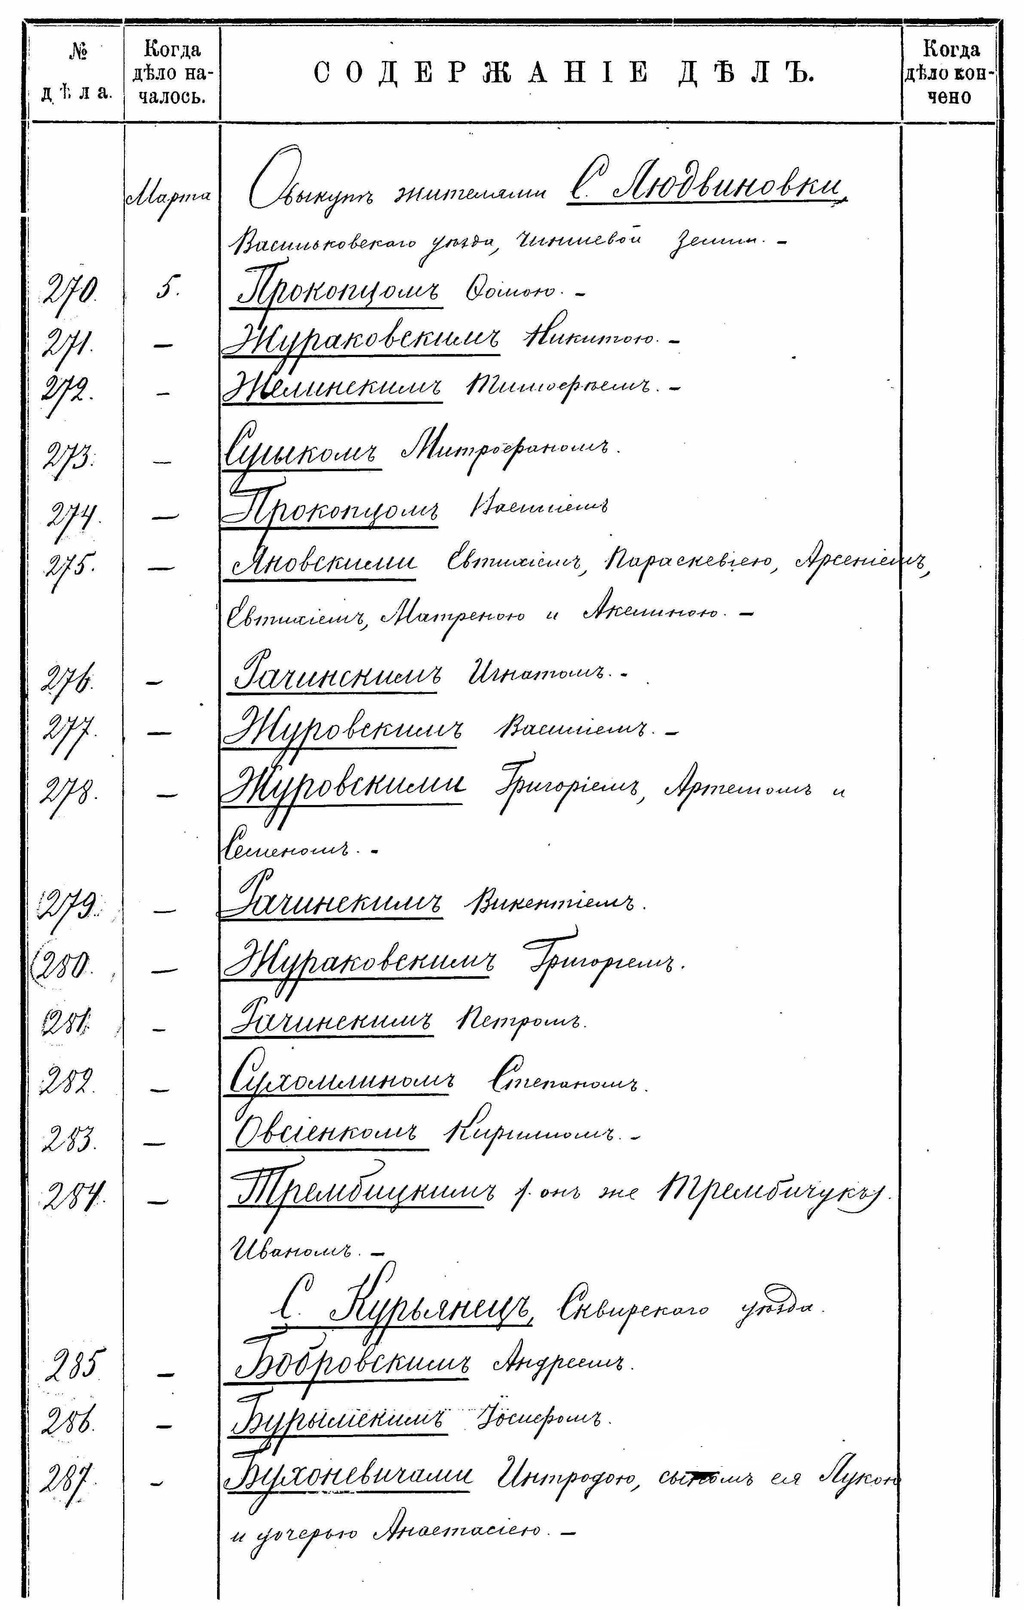 № дѣла.
Когда дѣло началось.
СОДЕРЖАНІЕ ДѢЛЪ.
Когда дѣло кончено
Марта О выкупѣ жителями С. Людвиновки,
Васильковскаго уѣзда, чиншевой земли. –
270. 5. Прокопцомъ Ѳомою. –
271. – Жураковскимъ Никитою. –
272. – Желинскимъ Тимофеемъ. –
273. – Сушкомъ Митрофаномъ.
274. – Прокопцомъ Василіемъ
275. – Яновскими Евтихіемъ, Параскевіею, Арсеніемъ,
Евтихіемъ, Матреною и Акелиною. –
276. – Рачинскимъ Игнатомъ. –
277. – Журовскимъ Василіемъ. –
278. – Журовскими Григоріемъ, Артемомъ и
Семеномъ. –
279. – Рачинскимъ Викентіемъ.
280. – Жураковскимъ Григоріемъ.
281. – Рачинскимъ Петромъ.
282. – Сухомлиномъ Степаномъ.
283. – Овсіенкомъ Кириломъ. –
284. – Трембицкимъ (онъ же Трембичукъ)
Иваномъ. –
С. Курьянецъ, Сквирскаго уѣзда.
285 – Бобровскимъ Андреемъ.
286. – Бурымскимъ Іосифомъ.
287. – Бухоневичами Интродою, сыномъ ея Лукою
и дочерью Анастасіею. –